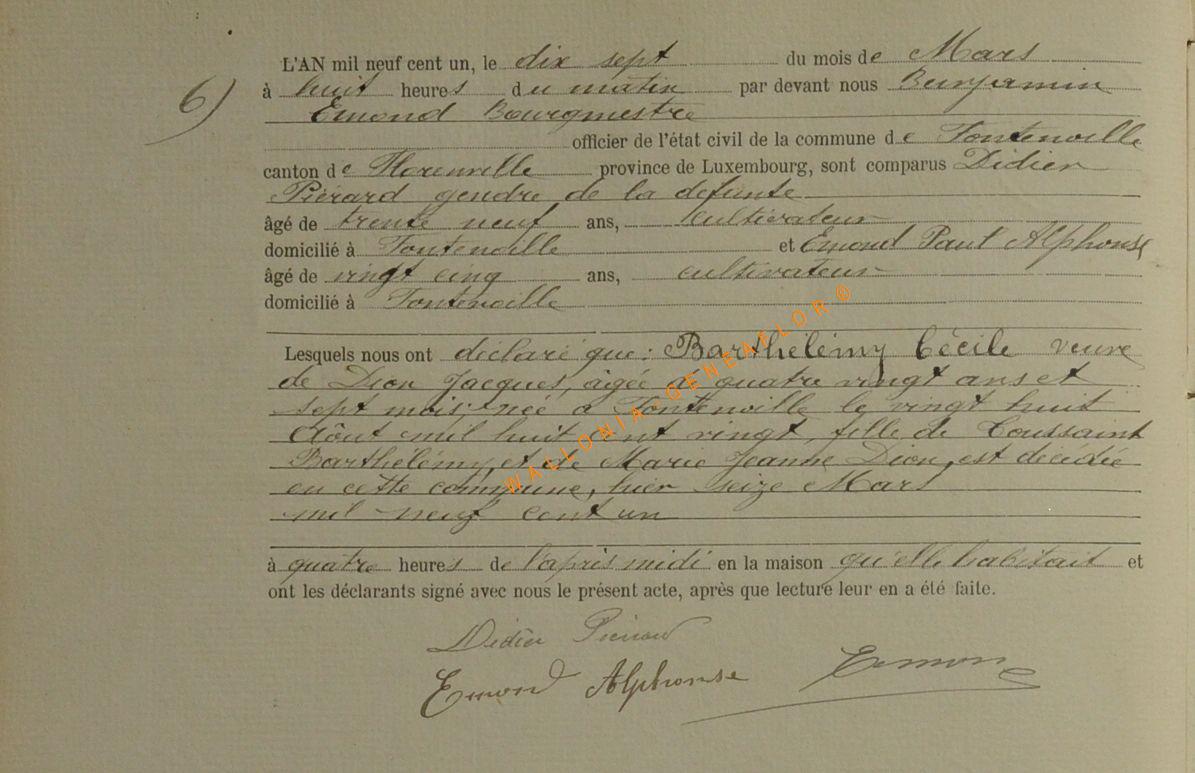 L'AN mil neuf cent un, le dix sept du mois de Mars
6) à huit heures du matin par devant nous Benjamin
Emond Bourgmestre
officier de l'état civil de la commune de Fontenoille
canton de Florenville province de Luxembourg, sont comparus Didier
Piérard gendre de la défunte
âgé de trente neuf ans, cultivateur
domicilié à Fontenoille et Emond Paul Alphonse
âgé de vingt cinq ans, cultivateur
domicilié à Fontenoille
Lesquels nous ont déclaré que: Barthélémy Cécile veuve
de Dion Jacques, âgée de quatre vingt ans et
sept mois, née à Fontenoille le vingt huit
Août mil huit cent vingt, fille de Toussaint
Barthélémy, et de Marie Jeanne Dion, est décédée
en cette commune, hier seize Mars
mil neuf cent un
à quatre heures de l'après midi en la maison qu'elle habitait et
ont les déclarants signé avec nous le présent acte, après que lecture leur en a été faite.
Didier Piérard
Emond Alphonse Emond
WALLONIA-GENEAFLOR©